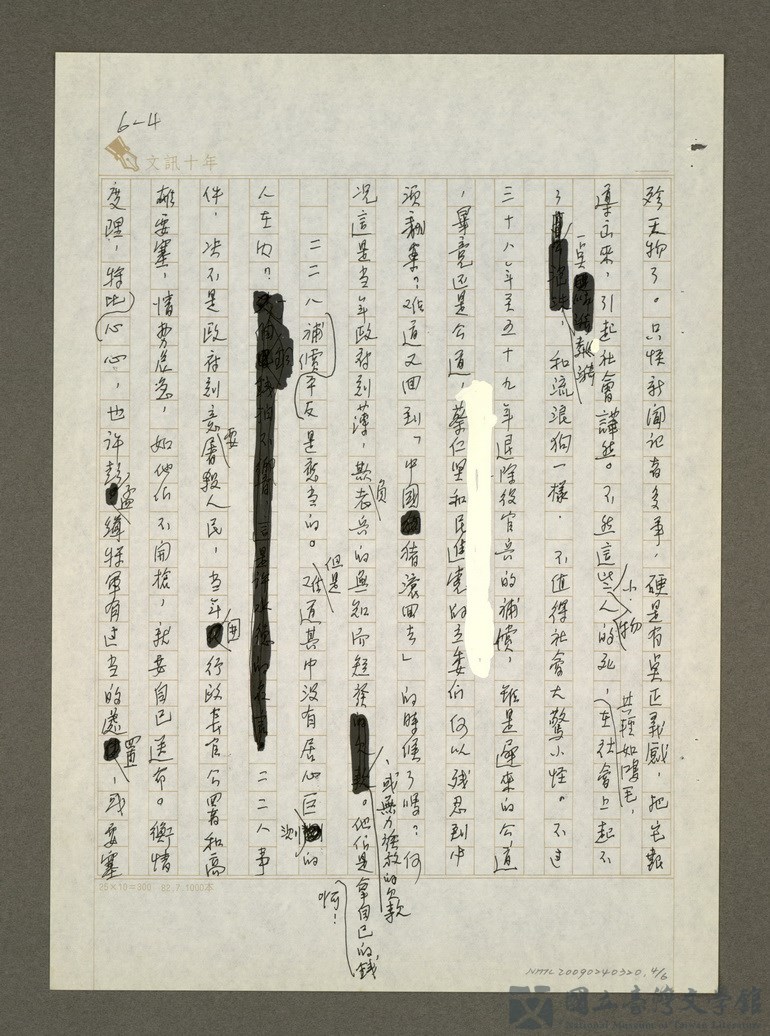 6-4
文訊十年
殄天物了。只怪新聞記者多事，硬是有點正義感，把它報
導出來，引起社會譁然。不然這些小人物的死，其輕如鴻毛，在社會上起不
了一點漣漪，和流浪狗一樣．不值得社會大驚小怪。不過
三十八年至五十九年退除役官兵的補償，雖是遲來的公道
，畢竟还是公道，蔡仁堅和民進党的立委們何以殘忍到中
況這是当年政府刻薄，欺負老兵的無知而短發，或無力發放的欠款。他們是拿自己的錢啊！
二二八補償平反是應当的。但是難道其中沒有居心叵測的
人在內？二二八事
件，決不是政府刻意要屠殺人民，当年因行政長官公署和高
雄要塞，情勢危急，如他們不開槍，就要自己送命。衡情
度理，將心比心，也許彭孟緝將軍有过当的處置，或要塞
25×10=300 82.7.1000本
NMTL20090240320.4/6
國立臺灣文學館
National Museum of Taiwan Literature